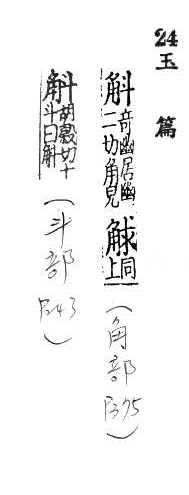 24 玉篇
觓 奇幽居幽二切角皃 觩 上同 (角部 P375)
斛 胡穀切十斗曰斛 (斗部 P343)